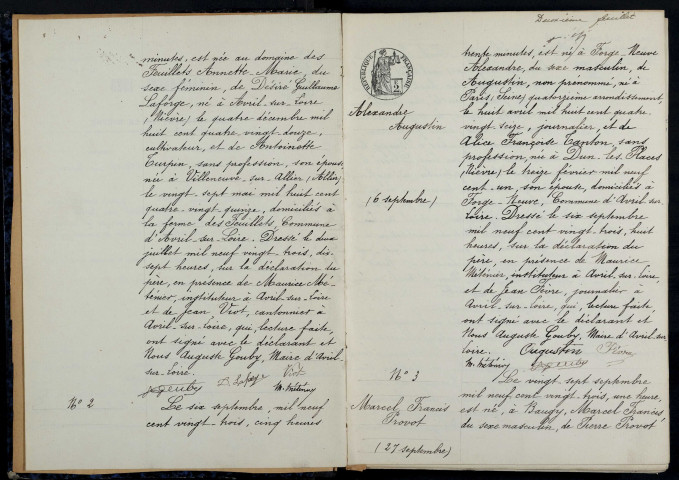 minutes, est née au domaine des
Feuillets Annette Marie, du
sexe féminin, de Désiré Guillaume
Laforge, né à Avril-sur-Loire
(Nièvre) le quatre décembre mil
huit cent quatre-vingt-douze,
cultivateur, et de Antoinette
Turpin, sans profession, son épouse,
née à Villeneuve-sur-Allier (Allier)
le vingt sept mai mil huit cent
quatre-vingt-quinze, domiciliés à
la ferme des Feuillets, Commune
d'Avril-sur-Loire. Dressé le deux
juillet mil neuf cent vingt-trois, dix
sept heures, sur la déclaration du
père, en présence de Maurice Mé-
ténier, instituteur à Avril-sur-Loire
et de Jean Viot, cantonnier à
Avril-sur-Loire, qui, lecture faite,
ont signé avec le déclarant et
Nous Auguste Gouby, Maire d'Avril-
sur-Loire.
AGouby D. Laforge Viot
M. Méténier
N° 2
Le six septembre, mil neuf
cent vingt-trois, cinq heures
Deuxième feuillet
RÉPUBLIQUE FRANÇAISE
2
Alexandre
Augustin
(6 septembre)
trente minutes, est né à Forge-Neuve
Alexandre, du sexe masculin, de
Augustin, non prénommé, né à
Paris, (Seine) quatorzième arrondissement,
le huit avril mil huit cent quatre
vingt-seize, journalier, et de
Alice Françoise Canton, sans
profession, née à Dun-les-Places
(Nièvre) le treize février mil neuf
cent-un, son épouse, domiciliés à
Forge-Neuve, Commune d'Avril-sur-
Loire. Dressé le six septembre
mil neuf cent vingt-trois, huit
heures, sur la déclaration du
père, en présence de Maurice
Méténier, instituteur à Avril-sur-Loire,
et de Jean Fèvre, journalier à
Avril-sur-Loire, qui, lecture faite
ont signé avec le déclarant et
Nous Auguste Gouby, Maire d'Avril-sur-
Loire. Augustin
M. Méténier AGouby
N° 3
Marcel Francis
Provot
(27 septembre)
Le vingt sept septembre
mil neuf cent vingt-trois, une heure,
est né, à Baugy, Marcel Francis,
du sexe masculin, de Pierre Provot